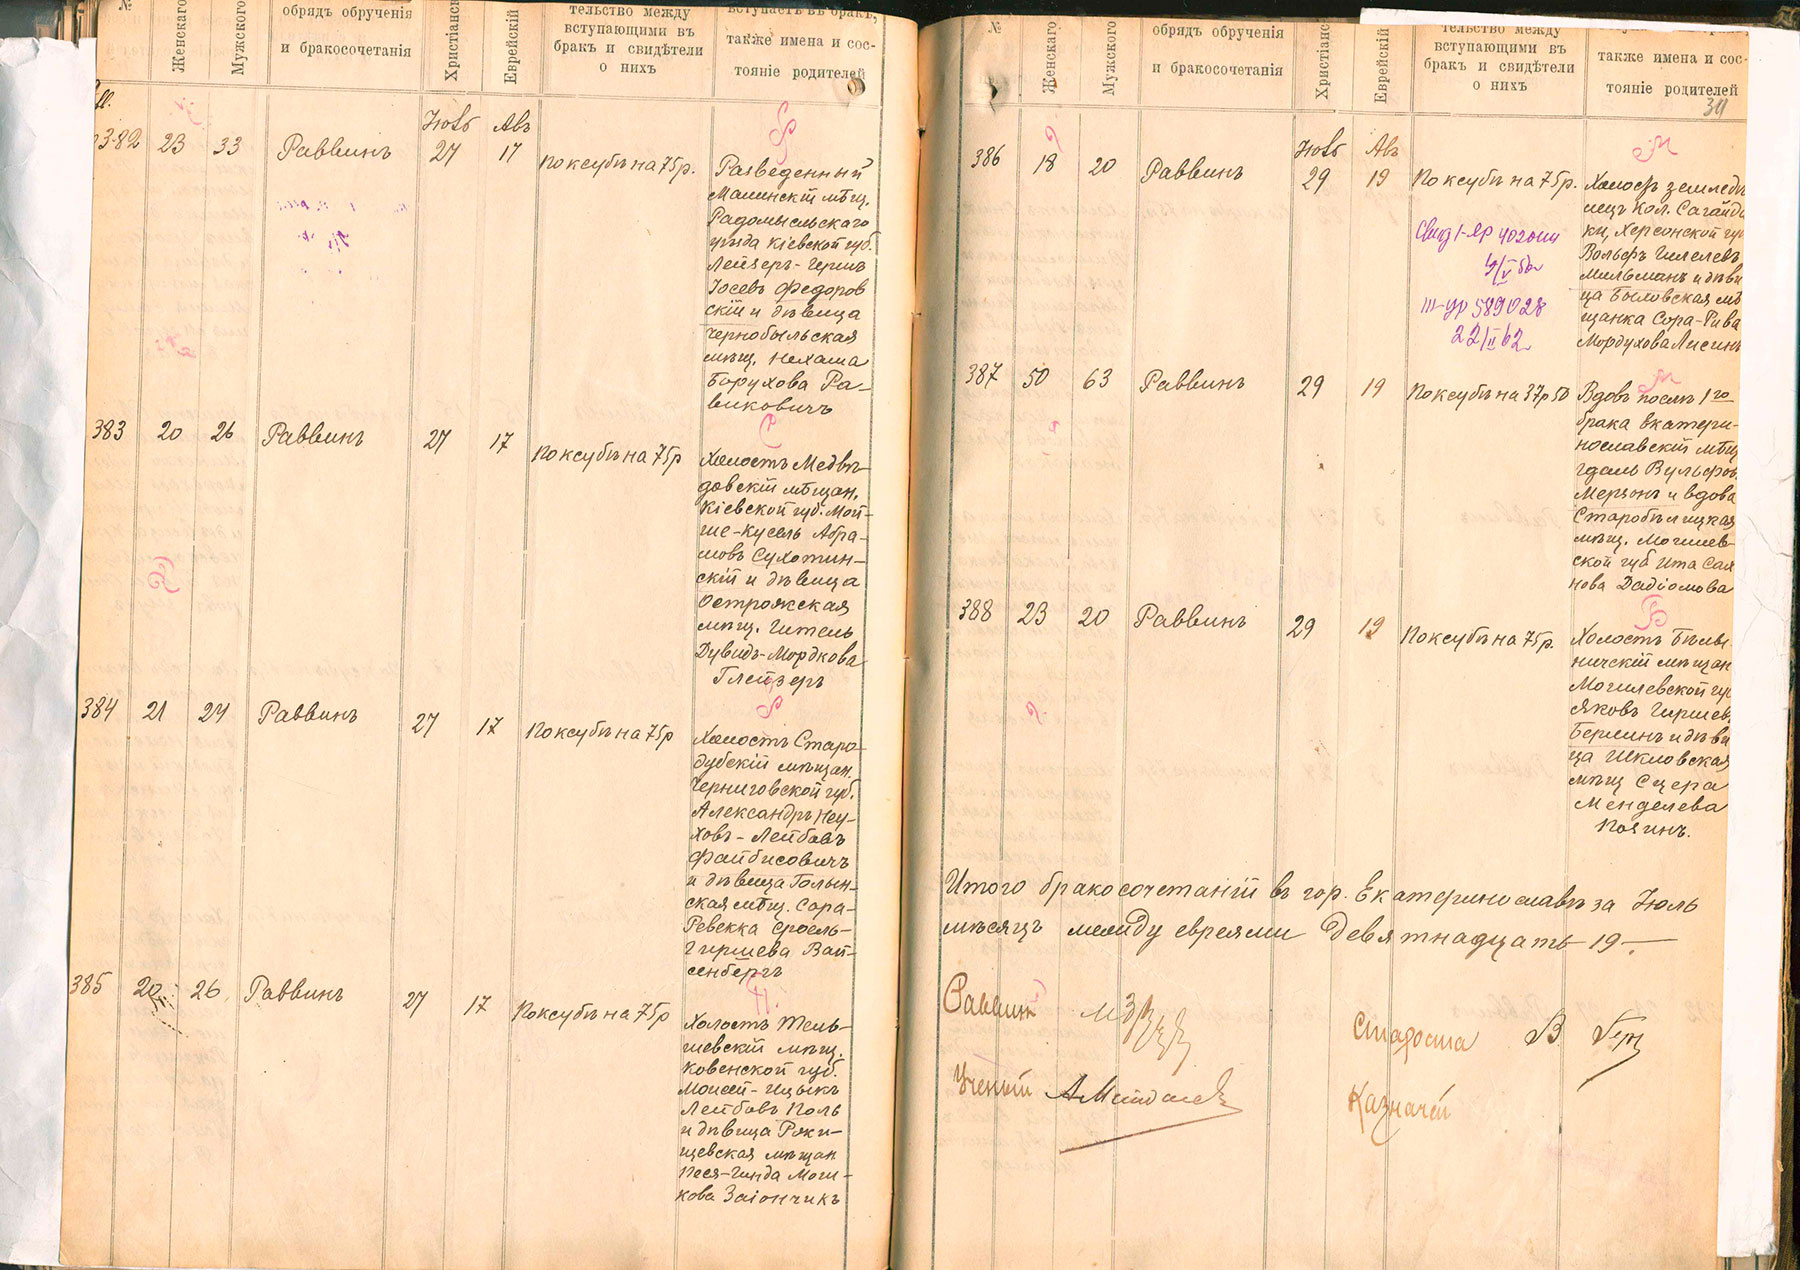 №
Женскаго
Мужского
обрядъ обрученія
и бракосочетанія
Христіанс
Еврейскій
тельство между
вступающими въ
бракъ и свидѣтели
о нихъ
вступаетъ въ бракъ,
также имена и сос-
тояніе родителей
382 23 33 Раввинъ
Авъ
27 17 По ксубѣ на 75 р.
Разведенный
Малинскій мѣщ.
Радомысльскаго
уѣзда Кіевской губ.
Лейзеръ-Гершъ
Іосевъ Федоров
скій и дѣвица
Чернобыльская
мѣщ. Нехама
Борухова Ра-
биковичъ
383 20 26 Раввинъ 27 17 По ксубѣ на 75 р
Холостъ Медвѣ-
довскій мѣщан.
Кіевской губ. Мой-
ше-Кусель Абра-
мовъ Сухотин-
скій и дѣвица
Острожская
мѣщ. Гитель
Дувидъ-Мордкова
Глейзеръ
384 21 24 Раввинъ 27 17 По ксубѣ на 75 р
Холостъ Старо-
дубскій мѣщан.
Черниговской губ.
Александръ Неу-
ховъ-Лейбовъ
Файбисовичъ
и дѣвица Голын-
ская мѣщ. Сора-
Ревекка Сроель-
Гиршева Вай-
сенбергъ
385 20 26 Раввинъ 27 17 По ксубѣ на 75 р
Холостъ Тель-
шевскій мѣщ.
Ковенской губ.
Моисей-Ицыкъ
Лейбовъ Поль
и дѣвица Рожи-
щевская мѣщан
Песя-Гинда Мош-
кова Заіончикъ
№
Женскаго
Мужского
обрядъ обрученія
и бракосочетанія
Христіанс
Еврейскій
тельство между
вступающими въ
бракъ и свидѣтели
о нихъ
также имена и сос-
тояніе родителей
386 18 20 Раввинъ
Авъ
29 19 По ксубѣ на 75 р.
402044
III-ур 589028
22/II 62
Холостъ земледѣ
лецъ Кол. Сагайда
ки, Херсонской гу
Вольфъ Гилелевъ
Мильманъ и дѣви
ца Быловская мѣ
щанка Сора-Рива
Мордухова Лисинъ
387 50 63 Раввинъ 29 19 По ксубѣ на 37 р 50
Вдовъ послѣ 1го
брака Екатери-
нославскій мѣщ
Гдаль Вульфов.
Мерзонъ и вдова
Старобѣлицкая
мѣщ. Могилев-
ской губ Ита
388 23 20 Раввинъ 29 19 По ксубѣ на 75 р.
Холостъ Бѣлы
ничскій мѣщан
Могилевской гу
Яковъ Гиршев.
Берлинъ и дѣви
ца Шкловская
мѣщ
Менделева
Позинъ.
Итого бракосочетаній въ гор. Екатеринославѣ за Іюль
мѣсяцъ между евреями Девятнадцать - 19 -
Раввинъ
Староста В
Ученый
Казначей